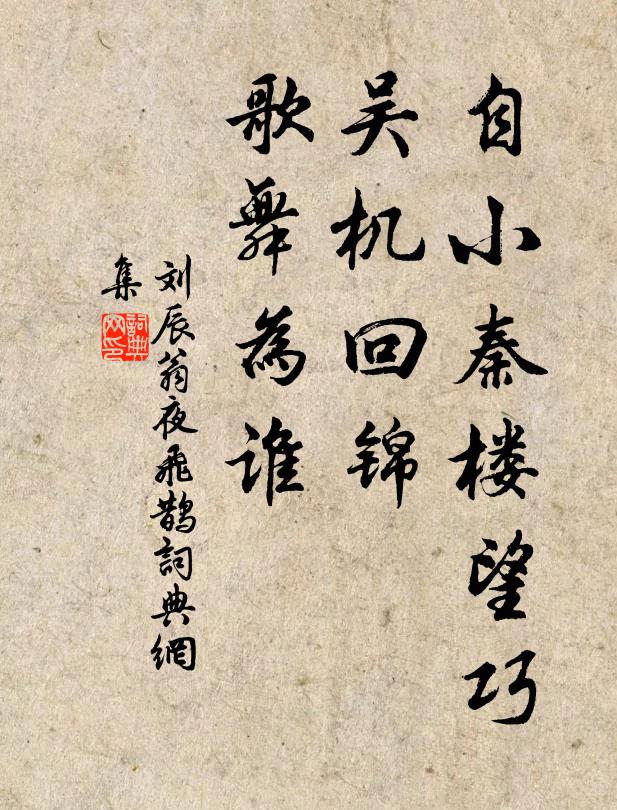 自小秦楼望巧
吴机回锦
歌舞为谁
刘辰翁夜飛鹊詞典網
集
詞典
网印